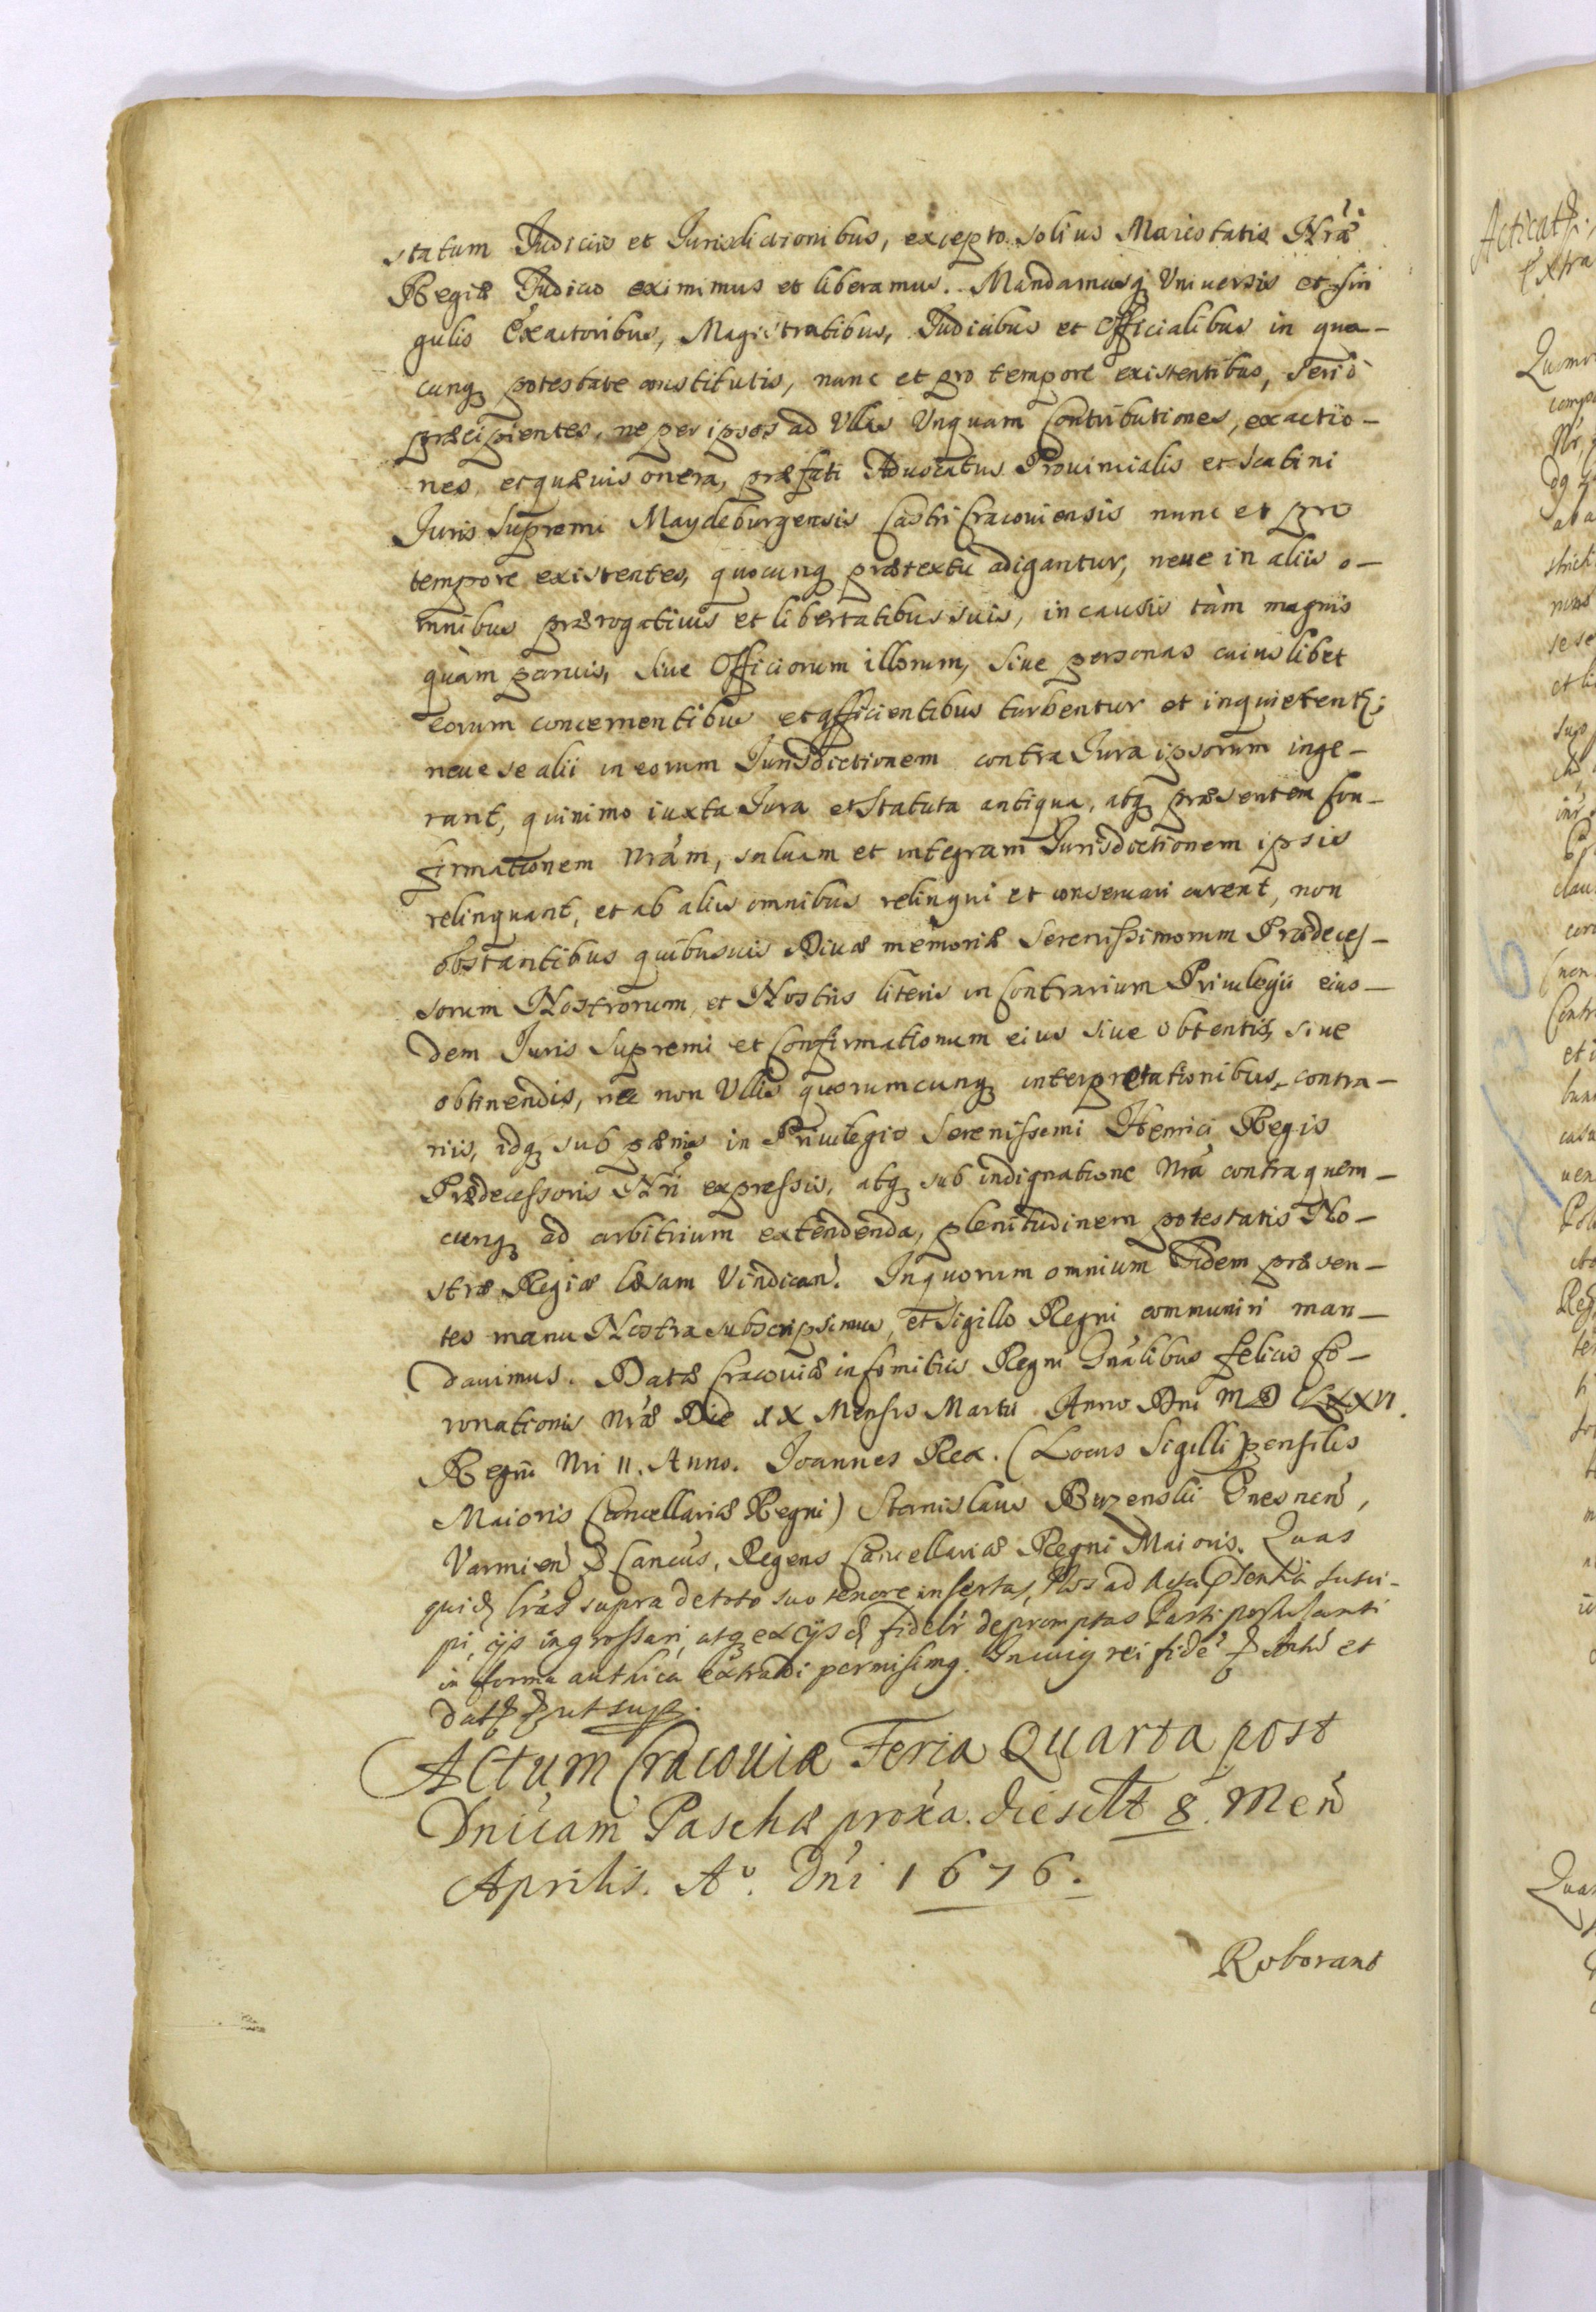 statum Judiciis et Jurisdictionibus, excepto solius Maiestatis Nrae
Regiae Judicio eximimus et liberamus. Mandamusq Vniuersis et sin
gulis Exactoribus, Magistratibus, Judicibus et Officialibus in qua-
cunq potestate constitutis, nunc et pro tempore existentibus, serio
praecipientes, ne per ipsos ad Vllas Vnquam Contributiones, exactio-
nes, et quaeuis onera, praefati Aduocatus Prouincialis et Scabini
Juris Supremi Maydeburgensis Castri Cracouiensis nunc et pro
tempore existentes, quocunq praetextu adigantur, neue in aliis o-
mnibus praerogatiuis et libertatibus suis, in causis tàm magnis
quàm paruis, siue Officiorum illorum, siue personas cuiuslibet
eorum concernentibus et afficientibus turbentur et inquietent;
neue se alii in eorum Jurisdictionem contra Jura ipsorum inge-
rant, quinimo iuxta Jura et Statuta antiqua, atq praesentem Con-
firmationem Nram, saluam et integram Jurisdictionem ipsis
relinquant, et ab aliis omnibus relinqui et conseruari curent, non
obstantibus quibusuis Diuae memoriae Serenissimorum Praedeces-
sorum Nostrorum, et Nostris literis in Contrarium Priuilegii eius-
dem Juris Supremi et Confirmationum eius siue obtentis, siue
obtinendis, nec non Vllis quorumcunq interpretationibus contra-
riis, idq sub paenis in Priuilegio Serenissimi Henrici Regis
Praedecessoris Nri expressis, atq sub indignatione Nra contra quem-
cunq ad arbitrium extendenda, plenitudinem potestatis No-
strae Regiae laesam Vindican. In quorum omnium Fidem praesen-
tes manu Nostra subscripsimus, et Sigillo Regni communiri man-
dauimus. Datae Cracouiae in Comitiis Regni Gnalibus felicis Co-
ronationis Nrae Die IX Mensis Martii Anno Dni MDCLXXVI.
Regni Nri II. Anno. Joannes Rex. (Locus Sigilli pensilis
Maioris Cancellariae Regni) Stanislaus Buzenski Gnesnen,
Varmien Cancus, Regens Cancellariae Regni Maioris. Quas
quid lras supra de toto suo tenore insertas, Nos ad Acta pntia susci-
pi, ijs ingrossari, atq ex ijs fideli depromptas Parti postulanti
in forma authca extradi permisimq. In cuiq rei fide et
dat ut supr.
Actum Cracouiae Feria Quarta post
Dnicam Paschae proxa. die scilt 8. Men
Aprilis. Ao. Dni 1676.
Roborant